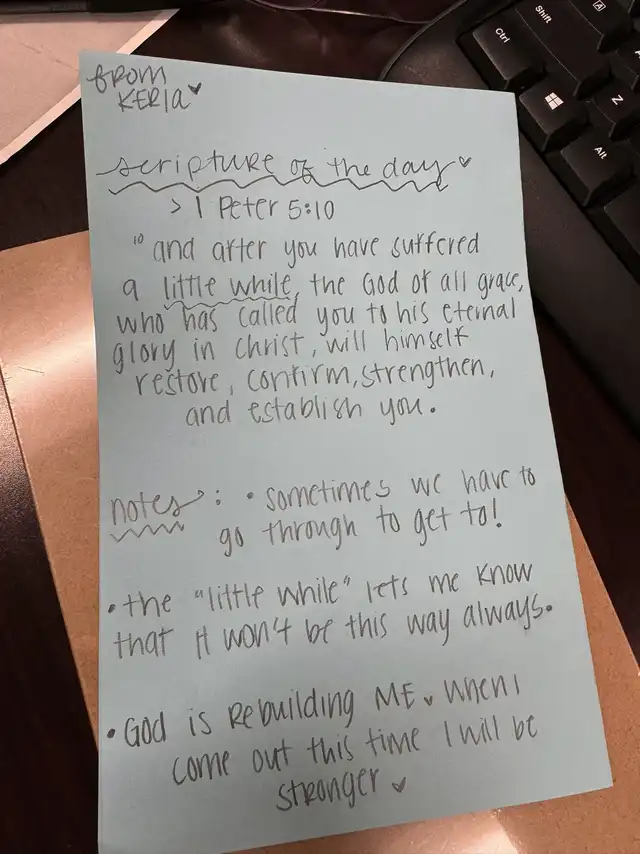 from
KERIA♥
scripture of the day♥
> 1 Peter 5:10
"10 and after you have suffered
a little while, the God of all grace,
who has called you to his eternal
glory in Christ, will himself
restore, confirm, strengthen,
and establish you.
notes: • sometimes we have to
go through to get to!
• the "little while" lets me know
that it won't be this way always.
• God is Rebuilding ME♥ When I
come out this time I will be
stronger♥
Ctrl
Shift
A
Z
Alt